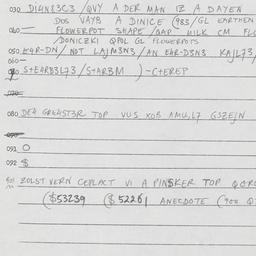 030 DI4N83C3 /QVY A DER MAN IZ A DAYEN
DOS VAYB A DINICE (983/GL EARTHEN
040 FLOWERPOT SHAPE /BAP MILK CM
/DONICZKI QPOL GL FLOWERPOTS
050 K4R-DN/ NOT LAJM3N3/AN EAR-D3N3 KAJL73/
060
S+EARB3L73/S+ARBM )-C+EREP
070
080 DE4 GRE4ST3R TOP VUS XOB AMUL17 GSZEJN
090
091 O
092 $
ZOLST VERN CEPLACT VI A PINSKER TOP
($53239 ($ 52261 ANECDOTE (900